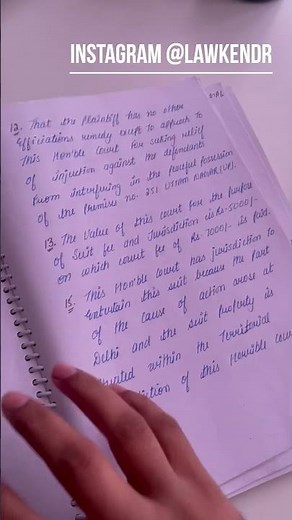 INSTAGRAM @LAWKENDR
12. That the Plaintiff has no other
efficatious remedy except to approach to
This Hon'ble Court for seeking relief
of Injuction against the defendants
from interfering in the peaceful possession
of the Premises no. 251. UTTAM NAGAR
13. The Value of this court for the purpose
of Suit fee and Jurisdiction is Rs-5000/-
on which court fee of Rs-7000/- is paid.
15. This Hon'ble Court has jurisdiction to
Entertain this suit because the part
of the cause of action arose at
Delhi and the suit property is
within the Territorial
of this Hon'ble